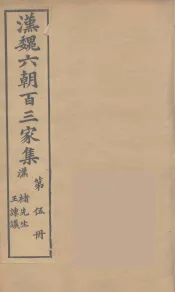 漢魏六朝百三家集
漢
褚先生
王諫議
第伍冊